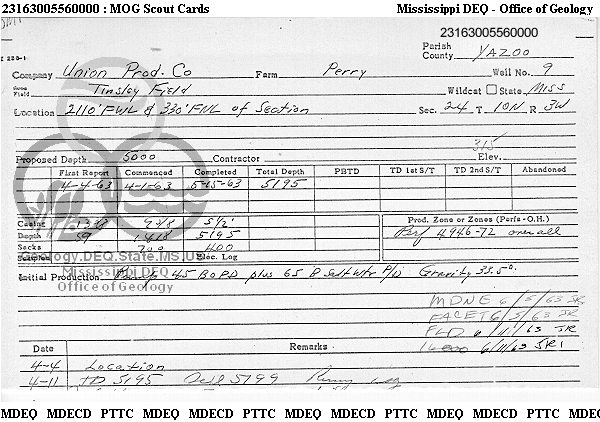 23163005560000 : MOG Scout Cards Mississippi DEQ - Office of Geology
23163005560000
Parish
County YAZOO
Company Union Prod. Co Farm Perry Well No. 9
Field Tinsley Field Wildcat State Miss
Location 2110' FWL & 330' FNL of Section Sec. 24 T. 10N R 3W
315
Proposed Depth 5000 Contractor Elev.
First Report Commenced Completed Total Depth PBTD TD 1st S/T TD 2nd S/T Abandoned
4-4-63 4-1-63 5-15-63 5195
Casing 13 3/8 9 5/8 5 1/2 Prod. Zone or Zones (Perfs-O.H.)
Depth 59 1418 5195 Perf 4946-72 overall
Sacks 700 400
Samples Elec. Log
Geology.DEQ.State.MS.US
Mississippi DEQ
Office of Geology
Initial Production Pump 45 BOPD plus 65 B Salt Wtr P/D Gravity 33.5°
MDNE 6/5/63 SR
FACET 6/5/63 SR
FLD 6/11/63 SR
6/11/63 SR
Date Remarks
4-4 Location
4-11 TD 5195 5199
MDEQ MDECD PTTC MDEQ MDECD PTTC MDEQ MDECD PTTC MDEQ MDECD PTTC MDEQ